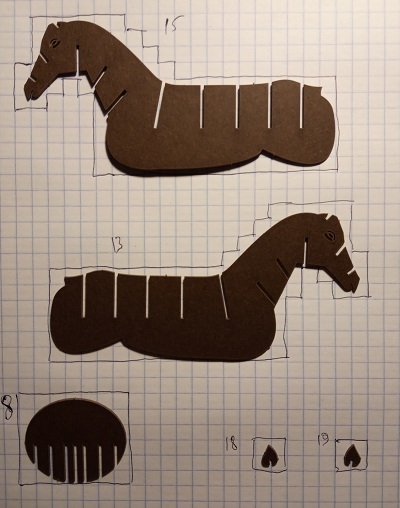 15
13
8
18 19